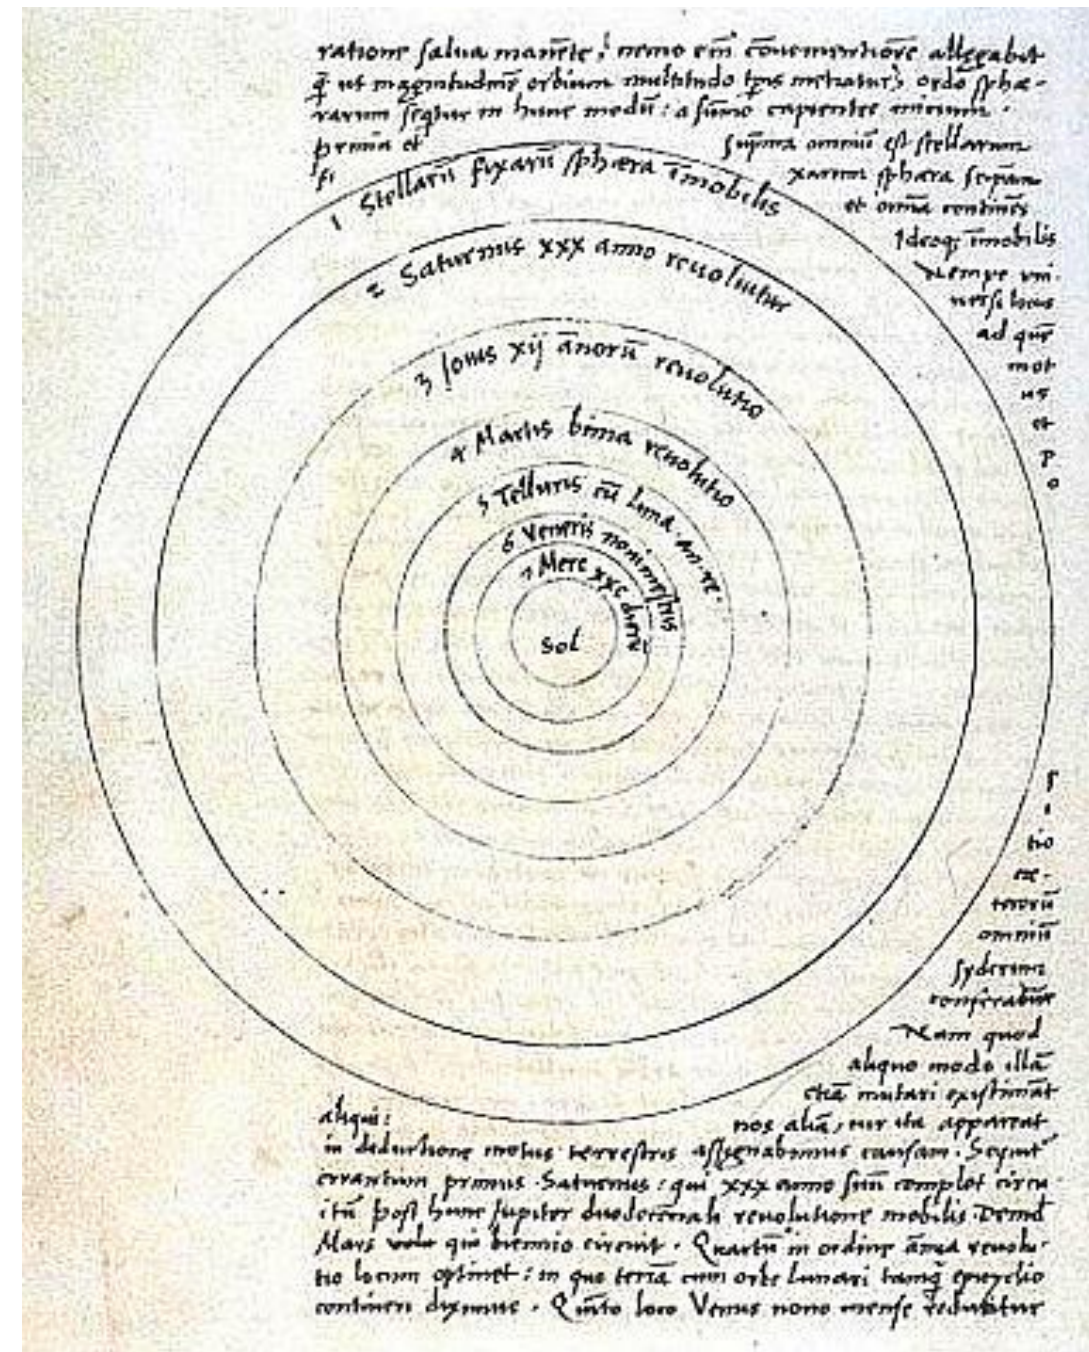 ratione salua manēte: nemo em̄ cōuenientiorē allegabit
q̄ ut magnitudinē orbium multitudo tp̄is metiatur, ordo sphæ-
rarum seqtur in hunc modū: a summo capientes initium.
prima et suprema omniū est stellarum
fi xarum sphæra seipsam
et omīa continēs
Ideoq; īmobilis
Nempe uni-
uersi locus
ad quē
mot
us
et
po
s
i
tio
cæ-
terorū
omniū
syderum
conferatur
Nam quod
aliquo modo illā
etiā mutari existimāt
aliqui: nos aliā, cur ita appareat
in deductione motus terrestris assignabimus causam. Sequit̄
errantium primus Saturnus: qui xxx anno suū complet circu
itū post hunc Jupiter duodecennali revolutione mobilis Deind
Mars qui biennio circuit. Quartū in ordine ānua revolu-
tio locum optinet: in quo terrā cum orbe lunari tamq̄ epicyclio
contineri diximus. Quīto loco Venus nono mense reducitur
1 Stellarū fixarū sphæra īmobilis
2 Saturnus xxx anno reuoluitur
3 Jouis xij ānorū reuolutio
4 Martis bima reuolutio
5 Telluris cū Luna an. re.
6 Veneris nonimestris
7 Merc xxc dierū
Sol